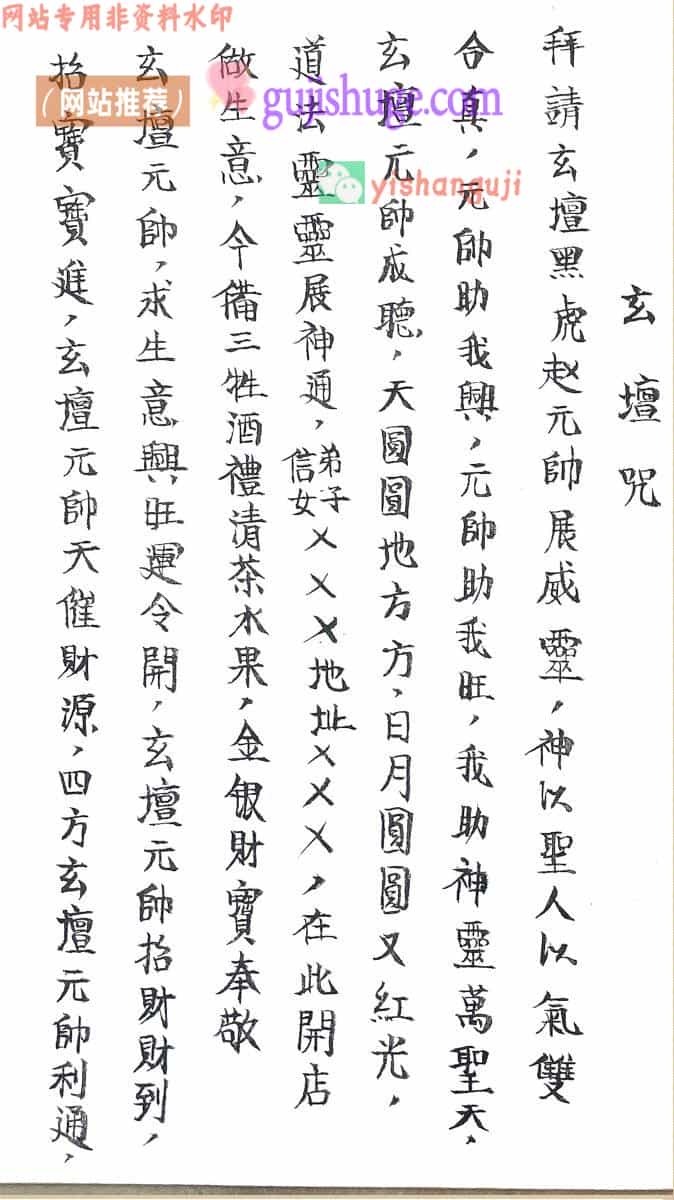 网站专用非资料水印
（网站推荐）
guishuge.com
yishanguji
玄壇咒
拜請玄壇黑虎赵元帥展威靈，神以聖人以氣雙
合真，元帥助我興，元帥助我旺，我助神靈萬聖天，
玄壇元帥成聽，天圓圓地方方，日月圓圓又紅光，
道法靈靈展神通，弟子信女×××地址×××，在此開店
做生意，今備三牲酒禮清茶水果，金銀財寶奉敬
玄壇元帥，求生意興旺運令開，玄壇元帥招財財到，
招寶寶進，玄壇元帥天催財源，四方玄壇元帥利通，